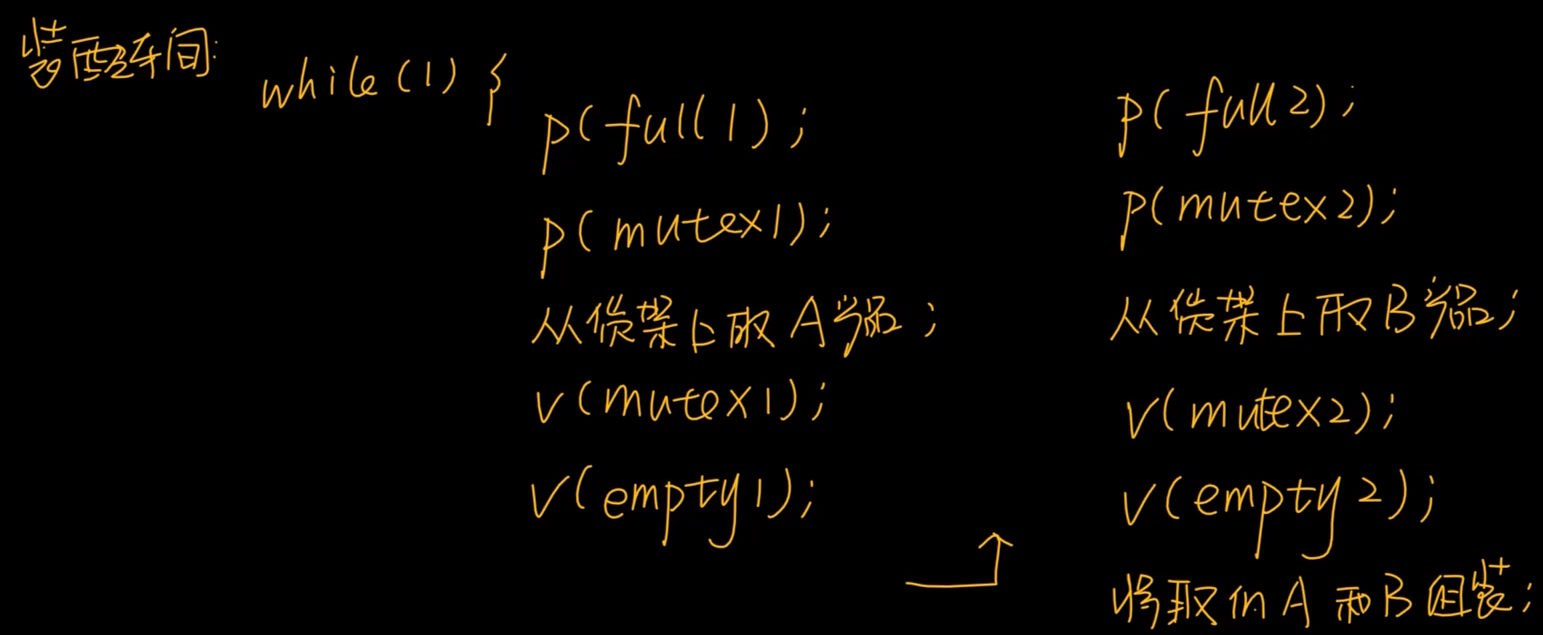 装配车间:
while(1) {
p(full1);
p(mutex1);
从货架上取A产品;
v(mutex1);
v(empty1);
p(full2);
p(mutex2);
从货架上取B产品;
v(mutex2);
v(empty2);
将取的A和B组装;